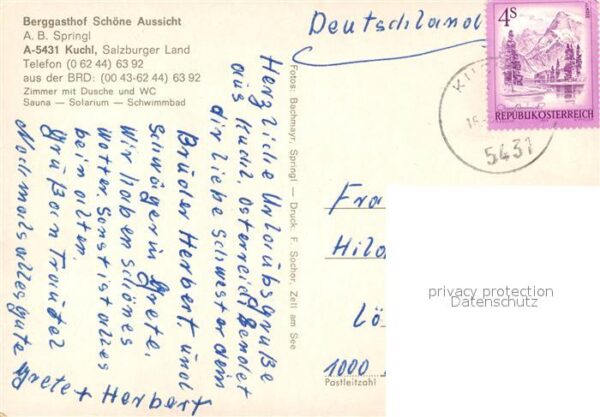 Berggasthof Schöne Aussicht
A. B. Springl
A-5431 Kuchl, Salzburger Land
Telefon (0 62 44) 63 92
aus der BRD: (00 43-62 44) 63 92
Zimmer mit Dusche und WC
Sauna — Solarium — Schwimmbad
Herzliche Urlaubsgrüße
aus Kuchl, Österreich sendet
dir liebe Schwester dein
Brüder Herbert, und
Schwägerin Grete.
Wir haben schönes
Wetter. Sonst ist alles
beim alten.
Gruß an Traudel
Nochmals alles gute
Grete + Herbert
Fotos: Bachmayr, Springl — Druck: F. Sochor, Zell am See
Deutschland
4S
REPUBLIK ÖSTERREICH
5431
Fra
Hild
Lö
1000
Postleitzahl
privacy protection
Datenschutz